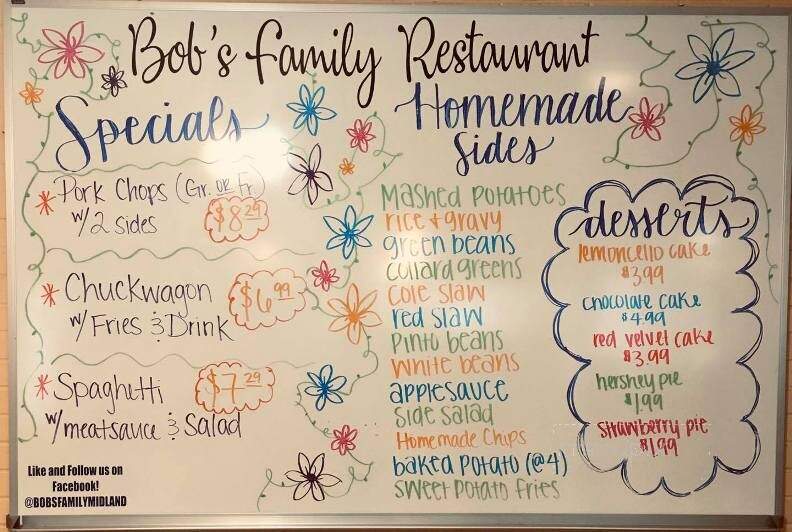 Bob's Family Restaurant
Specials
* Pork Chops (Gr. or Fr.)
w/2 sides
$8.29
* Chuckwagon
w/ Fries & Drink
$6.99
* Spaghetti
w/meatsauce & Salad
$7.29
Like and Follow us on
Facebook!
@BOBSFAMILYMIDLAND
Homemade
Sides
Mashed Potatoes
rice + gravy
green beans
collard greens
Cole slaw
red slaw
Pinto beans
white beans
applesauce
side salad
Homemade Chips
baked potato (@4)
sweet potato fries
desserts
lemoncello cake
$3.99
chocolate cake
$4.99
red velvet cake
$3.99
hershey pie
$1.99
strawberry pie
$1.99